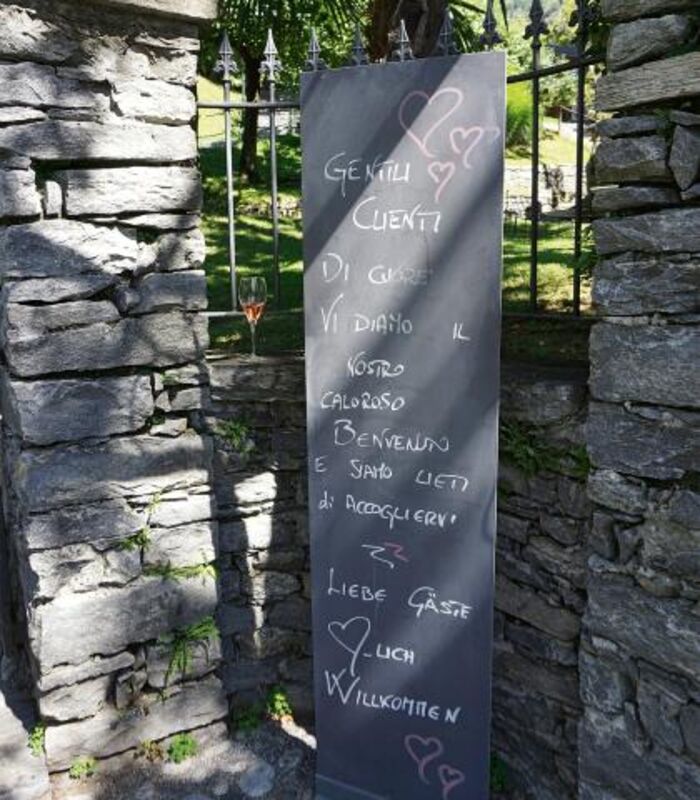 GENTILI
CLIENTI
DI CUORE
VI DIAMO IL
NOSTRO
CALOROSO
BENVENUTO
E SIAMO LIETI
di ACCOGLIERVI
LIEBE GÄSTE
-LICH
WILLKOMMEN